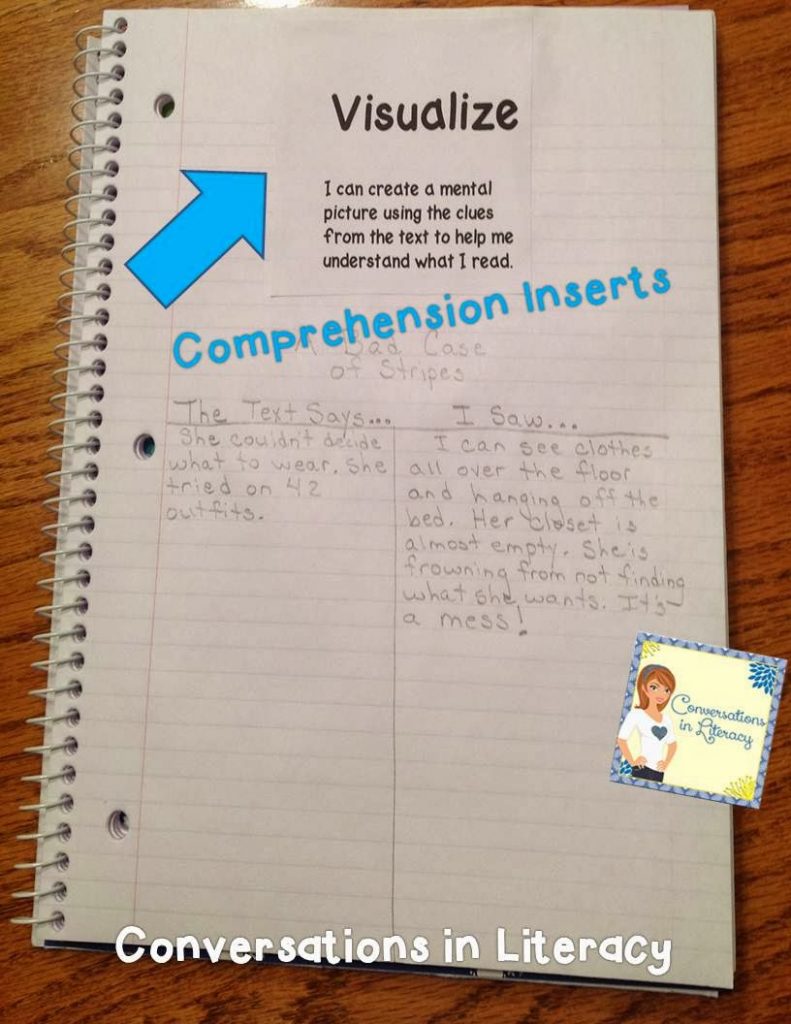 Visualize
I can create a mental
picture using the clues
from the text to help me
understand what I read.
Comprehension Inserts
A Bad Case
of Stripes
The Text Says...
I Saw...
She couldn't decide
what to wear. She
tried on 42
outfits.
I can see clothes
all over the floor
and hanging off the
bed. Her closet is
almost empty. She is
frowning from not finding
what she wants. It's
a mess!
Conversations
in Literacy
Conversations in Literacy